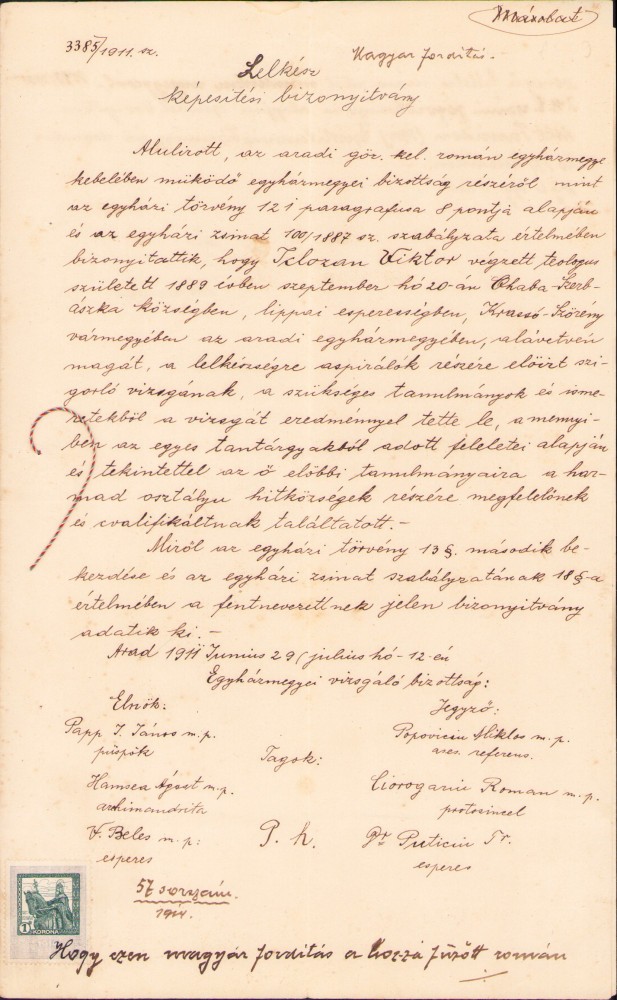 Másolat
3385/1911. sz.
Magyar fordítás.
Lelkész
képesitési bizonyitvány
Alulirott, az aradi gör. kel. román egyházmegye
kebelében müködő egyházmegyei bizottság részéről mint
az egyházi törvény 121 paragrafusa 8 pontja alapján
és az egyházi zsinat 100/1887 sz. szabályzata értelmében
bizonyitattik, hogy Iclozan Viktor végzett teologus
született 1889 évben szeptember hó 20-án Chaba-Szerb-
ászka községben, lippai esperességben, Krassó-Szörény
vármegyében az aradi egyházmegyében, alávetvén
magát, a lelkészségre aspirálók részére előirt szi-
gorló vizsgának, a szükséges tanulmányok és isme-
retekből a vizsgát eredménnyel tette le, a mennyi-
ben az egyes tantárgyakból adott feleletei alapján
és tekintettel az ő előbbi tanulmányaira a har-
mad osztályu hitközségek részére megfelelőnek
és cvalifikáltnak találtatott.-
Miről az egyházi törvény 13 §. második be-
kezdése és az egyházi zsinat szabályzatának 18 §-a
értelmében a fentnevezettnek jelen bizonyitvány
adatik ki.-
Arad 1911 Junius 29/július hó-12-én
Egyházmegyei vizsgáló bizottság:
Elnök: Jegyző:
Papp I. János m.p. Popoviciu Miklos m.p.
püspök ases. referens.
Tagok:
Hamsea Ágost m.p. Ciorogariu Roman m.p.
archimandrita protosincel
V. Beles m.p: P. h. Dr Puticiu Tr.
esperes esperes
57 sorszám.
1914
1 KORONA
Hogy ezen magyar fordítás a hozzá füzött román